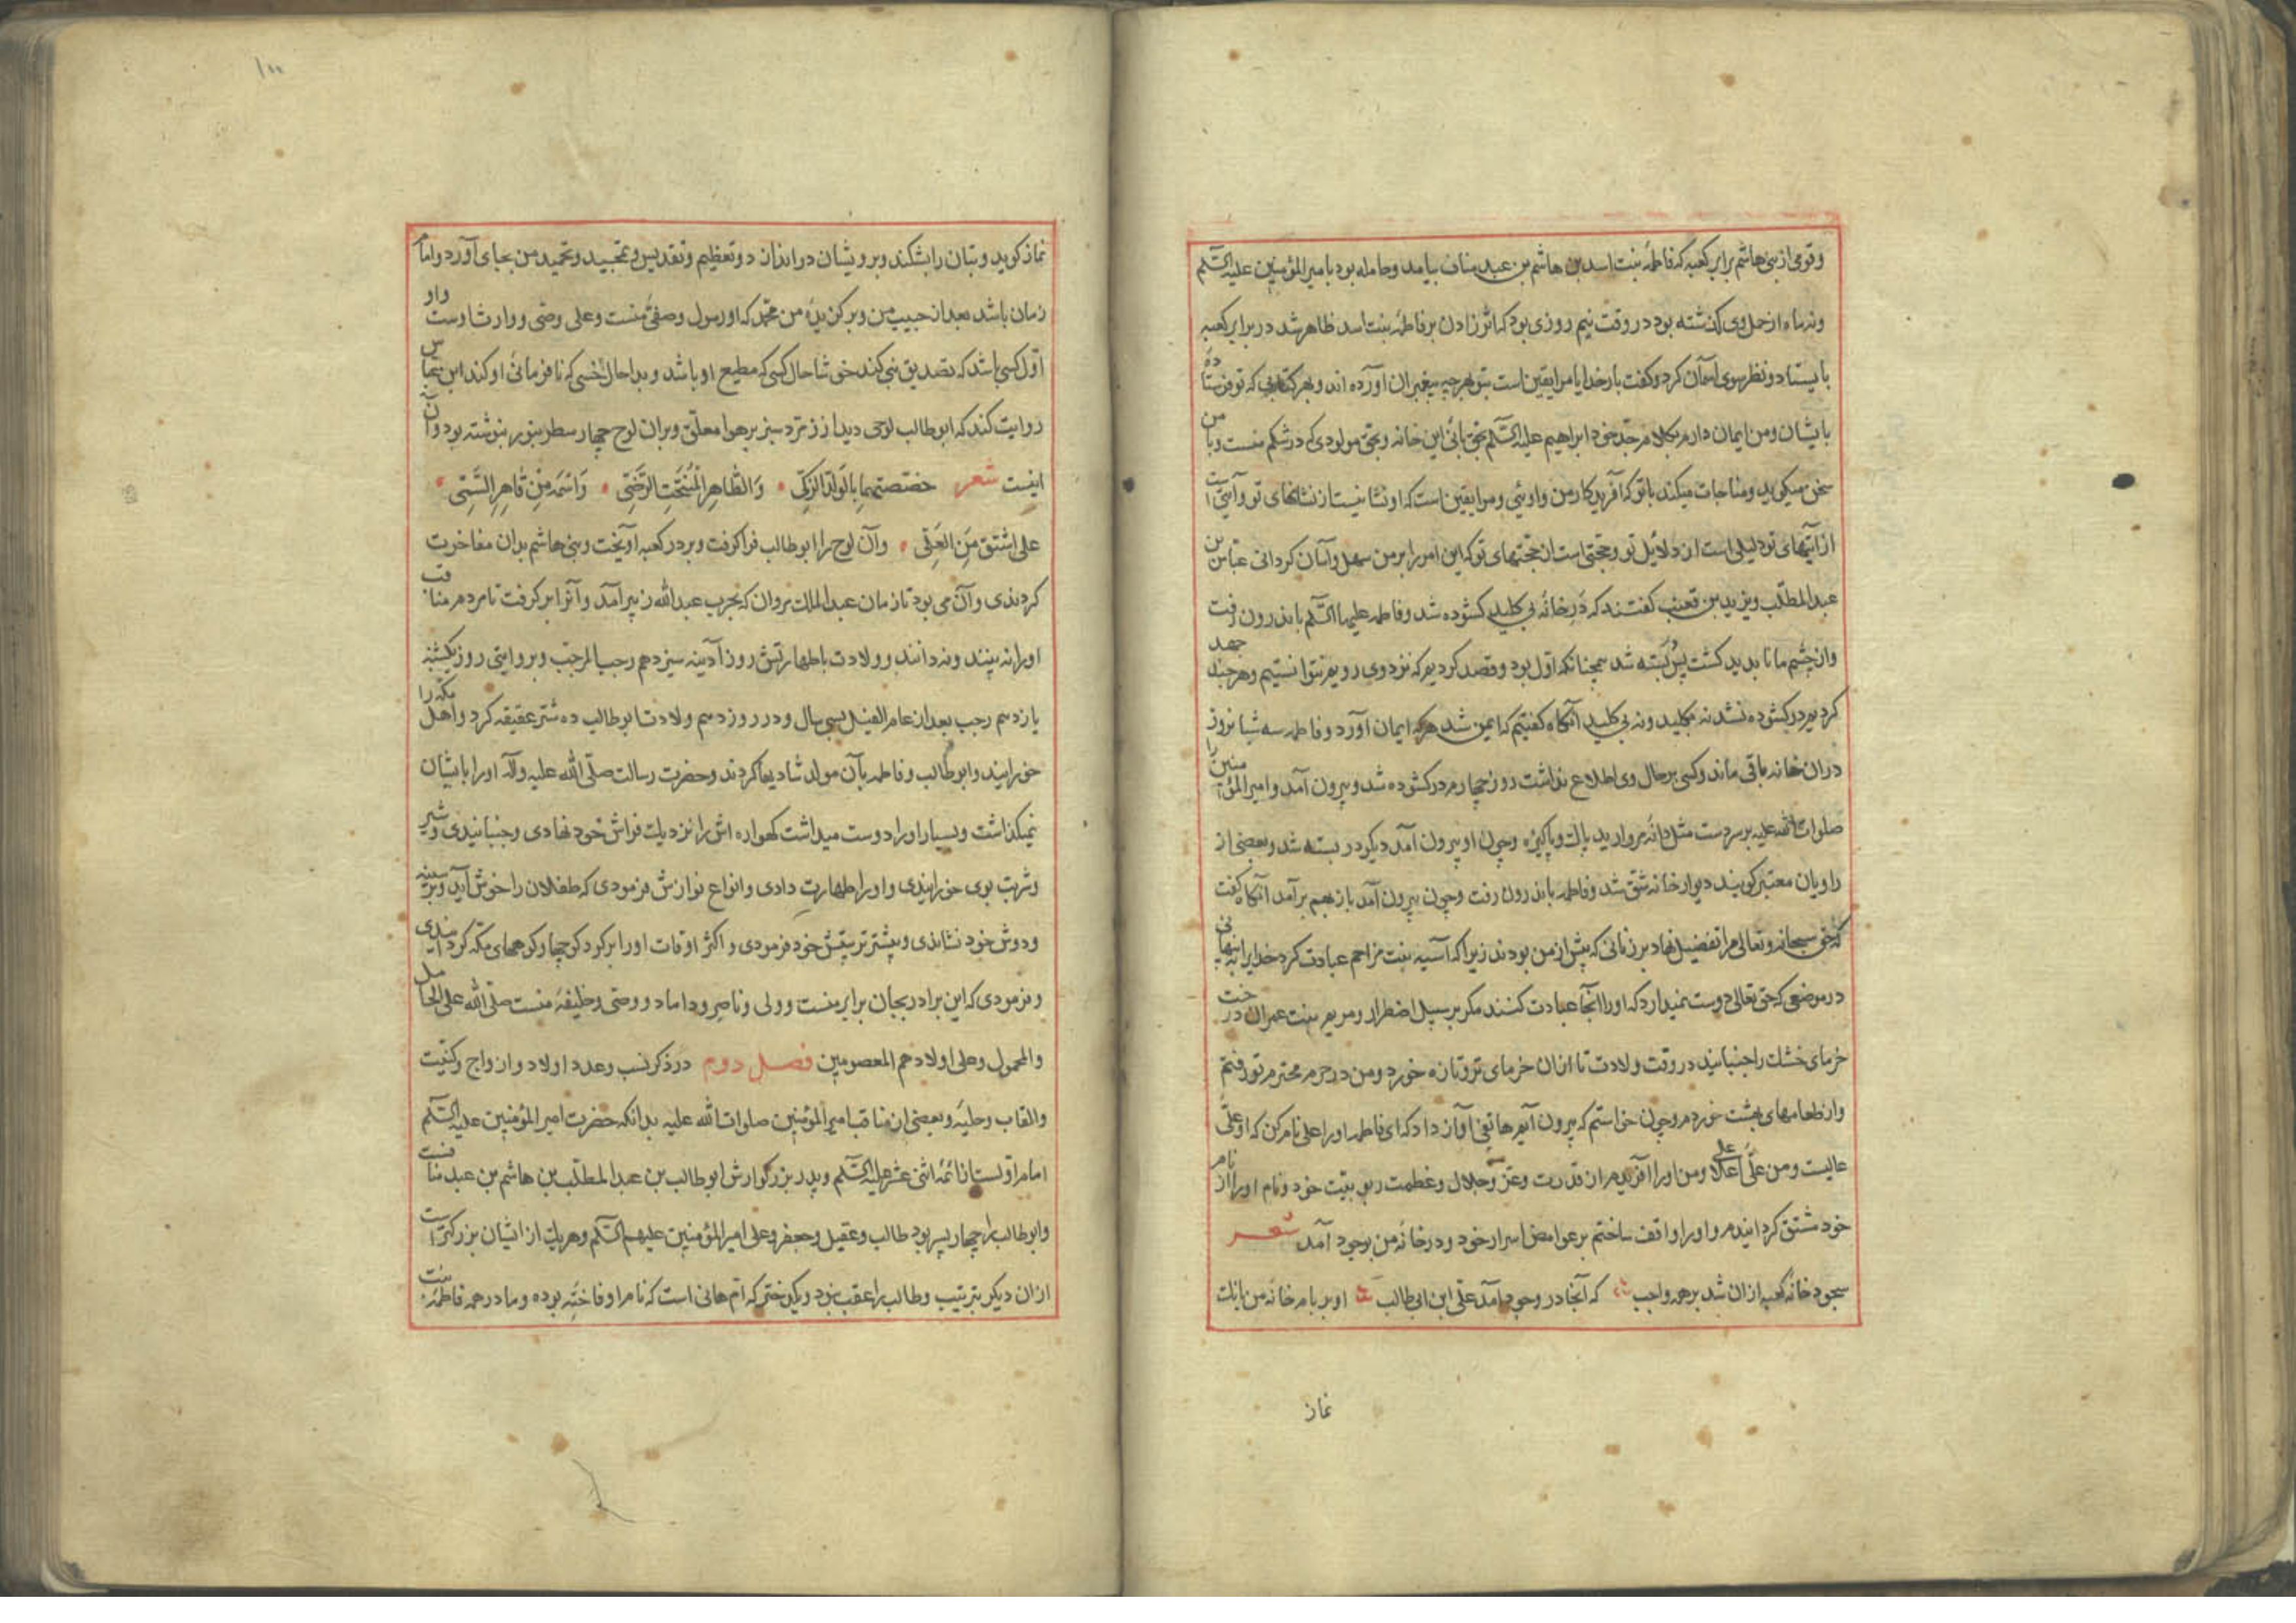 وقومی از بنی هاشم برابر کعبه که فاطمه بنت اسد بن هاشم بن عبد مناف بیامد و حامله بود بامیر المؤمنین علیه السّلم
ونه ماه از حمل وی گذشته بود در وقت نیم روزی بود که اثر زادن بر فاطمه بنت اسد ظاهر شد در برابر کعبه
بایستاد و نظر سوی آسمان کرد و کفت بار خدایا مرا یقین است بتو و بهر چه پیغمبران آورده اند و بهر کتابی که تو فرستاده
بایشان و من ایمان دارم بکلام جدّ خود ابراهیم علیه السّلم بحق بانی این خانه و بحق مولودی که در شکم منست و با من
سخن میکوید و مناجات میکند با تو که آفریدکار من و اوئی و مرا یقین است که او نشانیست از نشانهای تو و آیتی است
از آیتهای تو دلیلی است از دلائل تو و حجّتی است از حجّتهای تو که این امر را بر من سهل و آسان کردانی عبّاس بن
عبد المطلّب و یزید بن قعنب کفتند که در خانه بی کلید کشوده شد و فاطمه علیها السّلم باندرون رفت
واز چشم ما نابدید کشت پس بسته شد همچنانکه اوّل بود و قصد کردیم که نزد وی رویم نتوانستیم و هر چند جهد
کردیم در کشوده نشد نه بکلید و نه بی کلید آنکاه کفتیم که ایمن شد هر که ایمان آورد و فاطمه سه شبانروز
دران خانه باقی ماند و کسی بر حال وی اطلاع نداشت روز چهارم در کشوده شد و بیرون آمد و امیر المؤمنین را
صلوات الله علیه بر سر دست مثل دانه مروارید پاک و پاکیزه و چون او بیرون آمد دیکر در بسته شد و بعضی از
راویان معتبر کویند دیوار خانه شق شد و فاطمه باندرون رفت و چون بیرون آمد باز بهم برآمد آنکاه کفت
که حق سبحانه و تعالی مرا تفضیل نهاد بر زنانی که پیش از من بودند زیرا که آسیه بنت مزاحم عبادت کرد خدایرا به پنهانی
در موضعی که حق تعالی دوست نمیدارد که او را آنجا عبادت کنند مکر بر سبیل اضطرار و مریم بنت عمران درخت
خرمای خشک را جنبانید در وقت ولادت تا ازان خرمای تر و تازه خورد و من در حرم محترم تو رفتم
واز طعامهای بهشت خوردم و چون خواستم که بیرون آیم هاتفی آواز داد که ای فاطمه او را علی نام کن که او علّی
عالیست و من علّی اعلی و من او را آفریدم از قدرت و عزّ و جلال و عظمت ربوبیّت خود و نام او را از نام
خود مشتق کردانیدم و او را واقف ساختم بر غوامض اسرار خود و در خانه من بوجود آمد شعر
سجود خانه کعبه ازان شد بر همه واجب که آنجا در وجود آمد علّی ابن ابی طالب او بر بام خانه من بانک
نماز
۱۰۰
نماز کوید و بتان را بشکند و بر ویشان در اندازد و تعظیم و تقدیس و تمجید و تحمید من بجای آورد و امام
زمان باشد بعد از حبیب من و برکزیده من محمّد که او رسول و صفی منست و علی وصّی و وارث اوست و او
اوّل کسی باشد که تصدیق نبی کند خوشا حال کسی که مطیع او باشد و بدا حال شخصی که نافرمانی او کند ابن عباس
روایت کند که ابو طالب لوحی دید از زمرّد سبز بر هوا معلّق و بران لوح چهار سطر بنور بنوشته بود و آن
اینست شعر خصّصتهما بالولد الزّکی وَالطّاهِرِ المُنتَجَبِ الرّضی وَاسْمه مِن قاهِرِ السَّمیِ
علی اشتق مِنَ العلی وآن لوح را ابو طالب فراکرفت و بر در کعبه آویخت و بنی هاشم بدان مفاخرت
کردندی و آن می بود تا زمان عبد الملک مروان که بحرب عبد الله زبیر آمد و آنرا برکرفت تا مردم مناقب
او را نه بینند و ندانند و ولادت باطهارتش روز آدینه سیزدهم رجب المرجّب و بروایتی روز یکشنبه
یازدهم رجب بعد از عام الفیل بسی سال و در روز دهم ولادت ابو طالب ده شتر عقیقه کرد و اهل مکه را
خورانید و ابو طالب و فاطمه بآن مولد شادیها کردند و حضرت رسالت صلّی الله علیه و آله او را بایشان
نمیکذاشت و بسیار او را دوست میداشت کهواره اش را نزدیک فراش خود نهادی و جنبانیدی و شیر
وشربت بوی خورانیدی و او را طهارت دادی و انواع نوازش فرمودی که طفلان را خوش آید و بر سینه
ودوش خود نشاندی و بیشتر تربیتش خود فرمودی و اکثر اوقات او را بر کرد کوچها و کوههای مکّه کردانیدی
وفرمودی که این برادر بجان برابر منست و ولی و ناصر و داماد و وصّی و خلیفه منست صلّی الله علی الحامل
والمحمول وعلی اولادهم المعصومین فصل دوم در ذکر نسب و عدد اولاد و ازواج و کنیّت
والقاب و حلیه و بعضی از مناقب امیر المؤمنین صلوات الله علیه بدانکه حضرت امیر المؤمنین علیه السّلم
امام اوّلست از ائمّه اثنی عشر علیهم السّلم و پدر بزرکوارش ابو طالب بن عبد المطلّب بن هاشم بن عبد منافست
وابو طالب را چهار پسر بود طالب و عقیل و جعفر و علی امیر المؤمنین علیهم السّلم و هر یک از ایشان بزرکتر است
ازان دیکر بترتیب و طالب را عقب نبود و یکدختر که امّ هانی است که نام او فاخته بوده و مادر همه فاطمه بنت